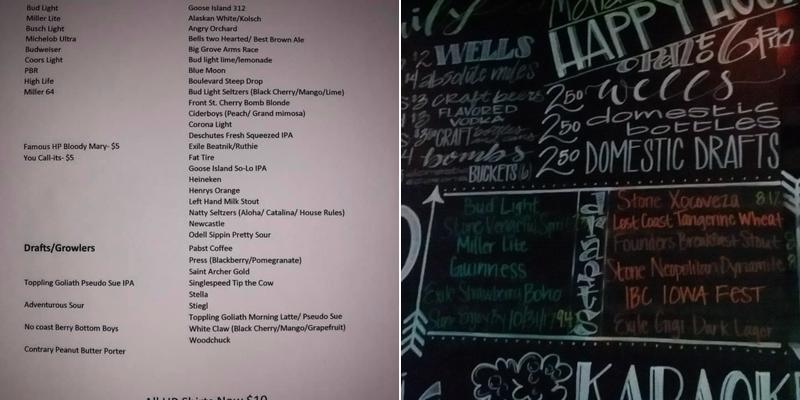 Bud Light
Miller Lite
Busch Light
Michelob Ultra
Budweiser
Coors Light
PBR
High Life
Miller 64
Famous HP Bloody Mary- $5
You Call-its- $5
Drafts/Growlers
Toppling Goliath Pseudo Sue IPA
Adventurous Sour
No coast Berry Bottom Boys
Contrary Peanut Butter Porter
Goose Island 312
Alaskan White/Kolsch
Angry Orchard
Bells two Hearted/ Best Brown Ale
Big Grove Arms Race
Bud light lime/lemonade
Blue Moon
Boulevard Steep Drop
Bud Light Seltzers (Black Cherry/Mango/Lime)
Front St. Cherry Bomb Blonde
Ciderboys (Peach/ Grand mimosa)
Corona Light
Deschutes Fresh Squeezed IPA
Exile Beatnik/Ruthie
Fat Tire
Goose Island So-Lo IPA
Heineken
Henrys Orange
Left Hand Milk Stout
Natty Seltzers (Aloha/ Catalina/ House Rules)
Newcastle
Odell Sippin Pretty Sour
Pabst Coffee
Press (Blackberry/Pomegranate)
Saint Archer Gold
Singlespeed Tip the Cow
Stella
Stiegl
Toppling Goliath Morning Latte/ Pseudo Sue
White Claw (Black Cherry/Mango/Grapefruit)
Woodchuck
All HP Shirts Now $10
HAPPY HOUR
6pm
$2 WELLS
craft beers
FLAVORED
VODKA
CRAFT
bombs
BUCKETS
2.50 wells
2.50 domestic
bottles
2.50 DOMESTIC DRAFTS
Bud Light
Miller Lite
Guinness
Exile Strawberry Boho
Stone Xocoveza 8.1%
Lost Coast Tangerine Wheat
Founders Breakfast Stout
Stone Neopolitan Dynamite
IBC IOWA FEST
Exile Gigi Dark Lager
KARAOKE